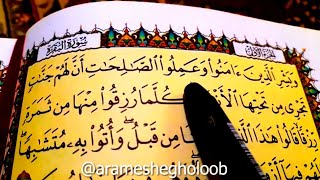 الجزء الأول
سورة البقرة
وَبَشِّرِ الَّذِينَ ءَامَنُوا وَعَمِلُوا الصَّالِحَاتِ أَنَّ لَهُمْ جَنَّاتٍ
تَجْرِى مِن تَحْتِهَا الْأَنْ كُلَّمَا رُزِقُوا مِنْهَا مِن ثَمَرَةٍ
رِزْقًا قَالُوا هَٰذَا الَّ مِن قَبْلُ وَأُتُوا بِهِ مُتَشَابِهًا
@aramesheghol​oob